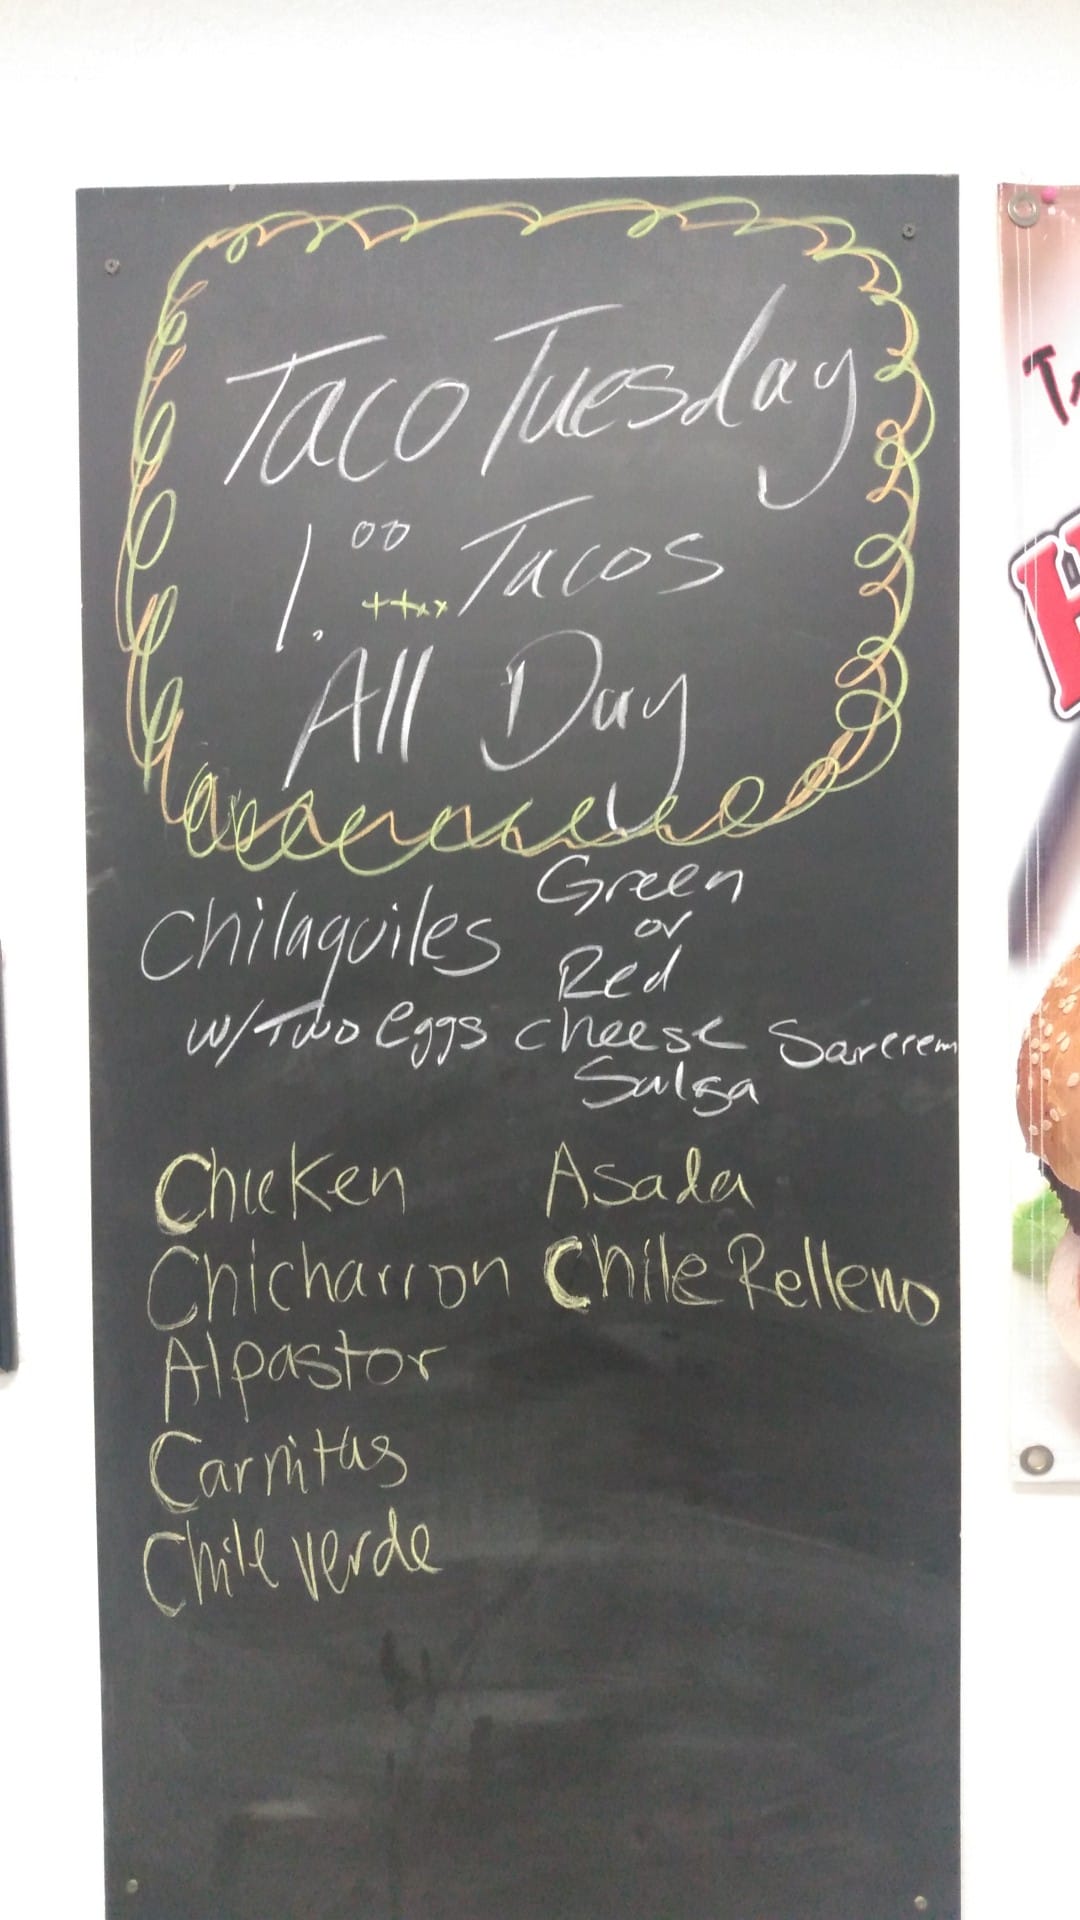 Taco Tuesday
1.00 Tacos
++xx
All Day
Chilaquiles
Green
or
Red
w/Two eggs cheese Sarcrem
Salsa
Chicken Asada
Chicharron Chile Relleno
Alpastor
Carnitas
Chile verde